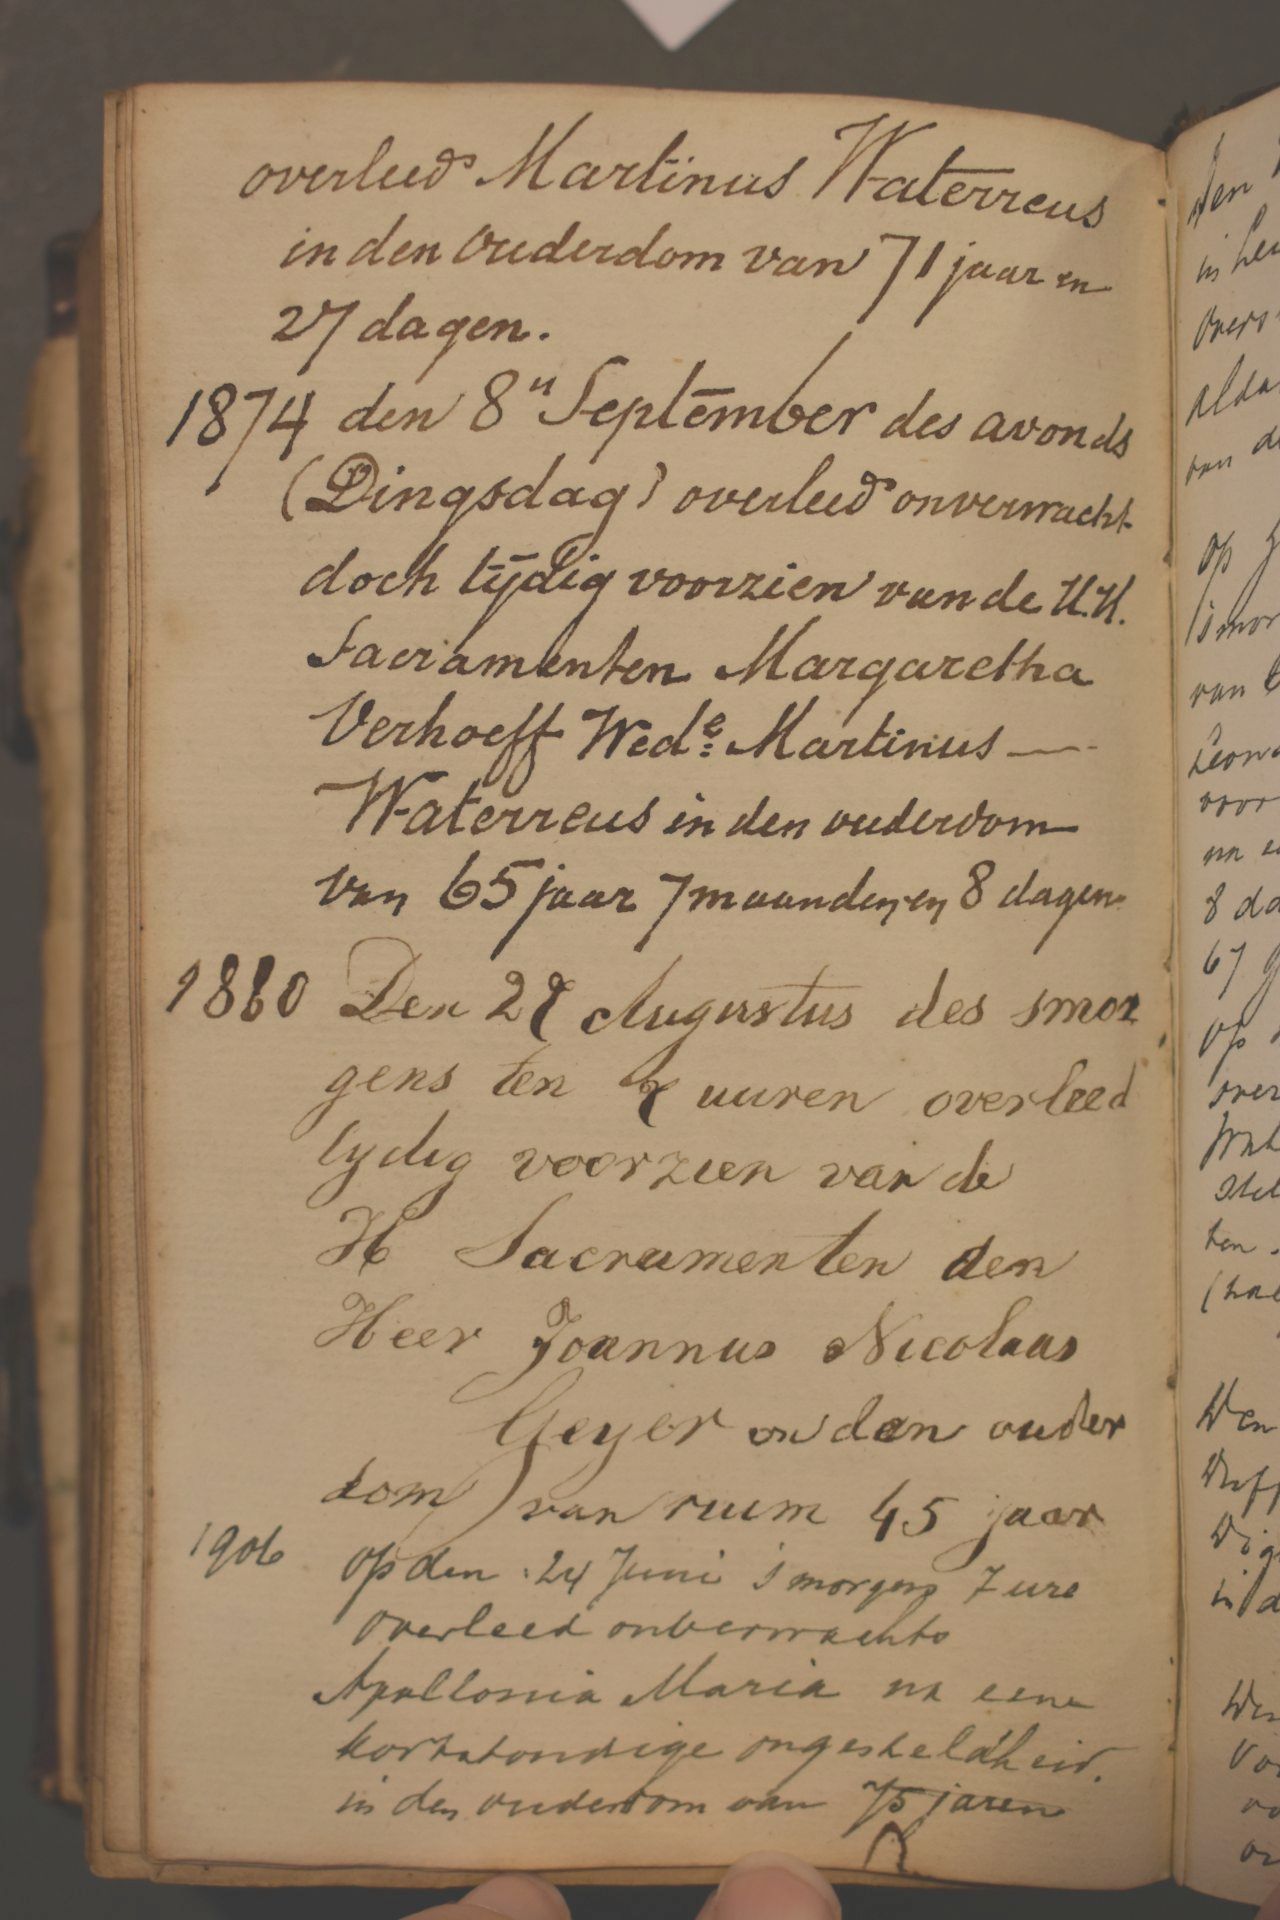 overleed Martinus Waterreus
in den Ouderdom van 71 jaar en
27 dagen.
1874 den 8n September des avonds
(Dingsdag) overleed onverwacht
doch tijdig voorzien van de H.H.
Sacramenten Margaretha
Verhoeff Wede. Martinus
Waterreus in den ouderdom
van 65 jaar 7 maanden en 8 dagen.
1880 Den 27 Augustus des smor
gens ten 7 uuren overleed
tydig voorzien van de
H Sacramenten den
Heer Joannus Nicolaas
Geyer in den ouder
dom van ruim 45 jaar
1906 op den 24 Juni 's morgens 7 ure
overleed onverwachts
Apollonia Maria na eene
kortstondige ongesteldheid.
in den ouderdom van 75 jaren